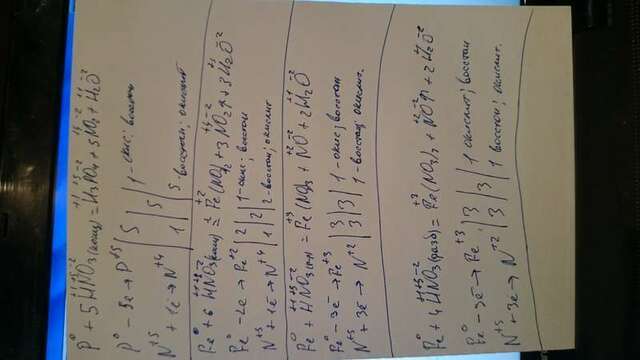 P⁰ + 5HNO₃(конц) = H₃PO₄ + 5NO₂ + H₂O
P⁰ - 5e → P⁺⁵ | 5 | 5 | 1 - окис; восстан
N⁺⁵ + 1e → N⁺⁴ | 1 | 5 восстан; окислит
Fe + 6HNO₃(конц) = Fe(NO₃)₂ + 3NO₂↑ + 3H₂O
Fe⁰ - 2e → Fe⁺² | 2 | 1 - окис; восстан
N⁺⁵ + 1e → N⁺⁴ | 1 | 2 | 2 - восстан; окислит
Fe + HNO₃ = Fe(NO₃ + NO + 2H₂O
Fe⁰ - 3e → Fe⁺³ | 3 | 3 | 1 - окис; восстан
N⁺⁵ + 3e → N⁺² | 3 | 3 | 1 - восстан, окислит.
Fe + 4HNO₃(разб) = Fe(NO₃)₃ + NO↑ + 2H₂O
Fe⁰ - 3e → Fe⁺³ | 3 | 3 | 1 окислит; восстан
N⁺⁵ + 3e → N⁺² | 3 | 3 | 1 восстан; окислит.